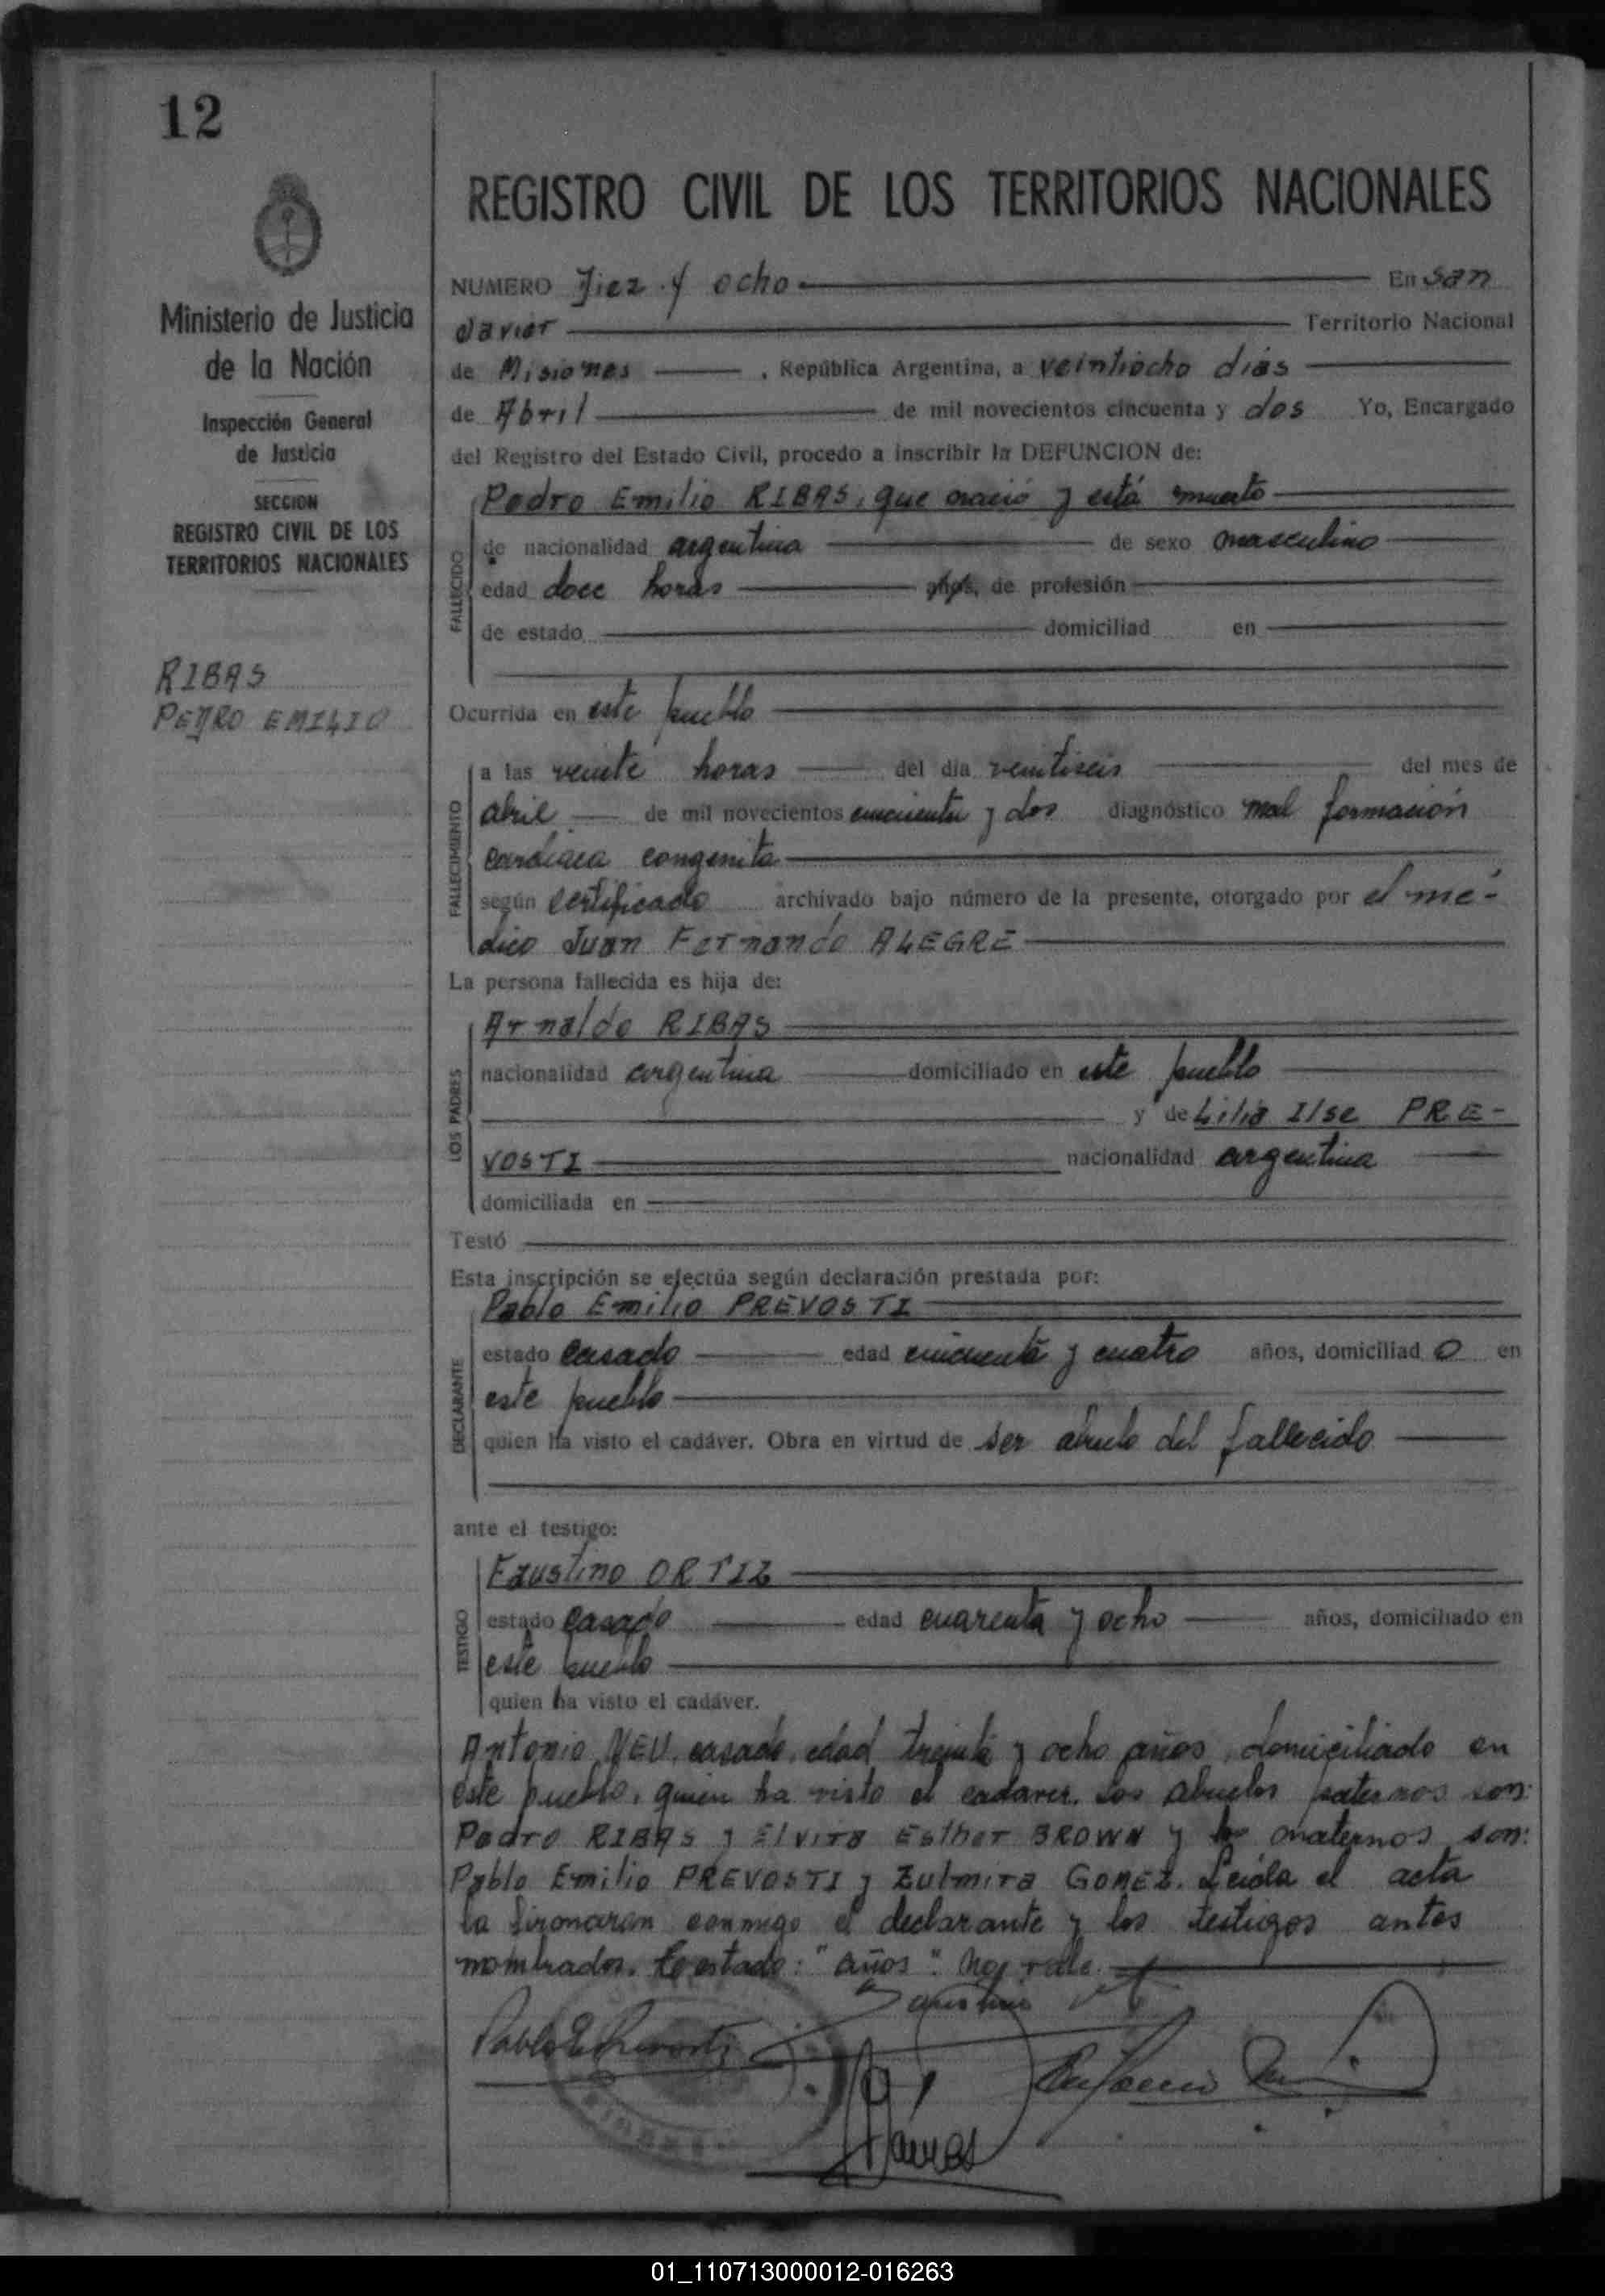 12
REGISTRO CIVIL DE LOS TERRITORIOS NACIONALES
Ministerio de Justicia
de la Nación
Inspección General
de Justicia
SECCION
REGISTRO CIVIL DE LOS
TERRITORIOS NACIONALES
RIBAS
PEDRO EMILIO
NUMERO Diez y ocho En San
Javier Territorio Nacional
de Misiones , República Argentina, a veintiocho dias
de Abril de mil novecientos cincuenta y dos Yo, Encargado
del Registro del Estado Civil, procedo a inscribir la DEFUNCION de:
Pedro Emilio RIBAS, que nació y está muerto
FALLECIDO
de nacionalidad argentina de sexo masculino
edad doce horas años, de profesión
de estado domiciliad en
Ocurrida en este pueblo
FALLECIMIENTO
a las veinte horas del día veintiseis del mes de
abril de mil novecientos cincuenta y dos diagnóstico mal formación
cardiaca congenita
según certificado archivado bajo número de la presente, otorgado por el mé-
dico Juan Fernando ALEGRE
La persona fallecida es hija de:
LOS PADRES
Arnaldo RIBAS
nacionalidad argentina domiciliado en este pueblo
y de Lilia Ilse PRE-
VOSTI nacionalidad argentina
domiciliada en
Testó
Esta inscripción se efectúa según declaración prestada por:
DECLARANTE
Pablo Emilio PREVOSTI
estado casado edad cincuenta y cuatro años, domiciliad o en
este pueblo
quien ha visto el cadáver. Obra en virtud de ser abuelo del fallecido
ante el testigo:
TESTIGO
Faustino ORTIZ
estado casado edad cuarenta y ocho años, domiciliado en
este pueblo
quien ha visto el cadáver.
Antonio NEU, casado, edad treinta y ocho años, domiciliado en
este pueblo, quien ha visto el cadaver. Los abuelos paternos son:
Pedro RIBAS y Elvira Esther BROWN y los maternos son:
Pablo Emilio PREVOSTI y Zulmira GOMEZ. Leida el acta
la firmaron conmigo el declarante y los testigos antes
nombrados. Testado: "años". No vale.
Pablo E Prevosti
01_110713000012-016263